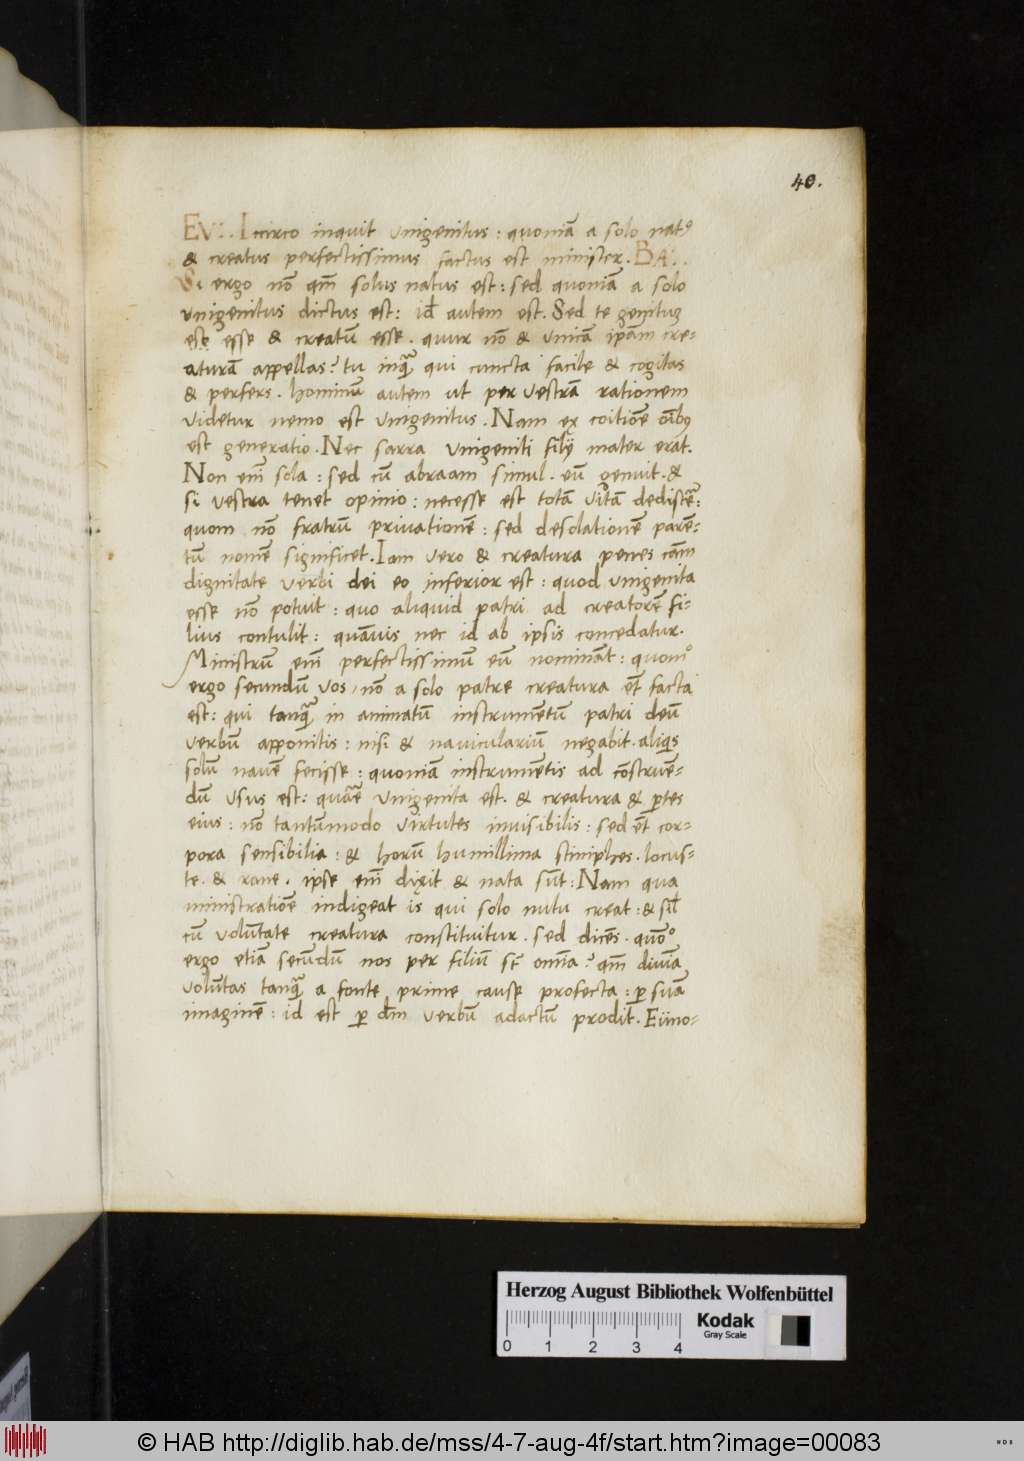 40.
EV. Iccirco inquit unigenitus: quoniã a solo nat⁹
& creatus perfectissimus factus est minister. BA.
Si ergo nõ qm̃ solus natus est: sed quoniã a solo
unigenitus dictus est: id autem est. Sed te genitus
est esse & creatũ esse. quur nõ & unicã ip̃am cre=
aturã appellas? tu inq̃ qui cuncta facile & cogitas
& perfers. hominũ autem ut per vestrã rationem
videtur nemo est unigenitus. Nam ex coitiõe oĩb⁹
est generatio. Nec sarra unigeniti filij mater erat.
Non em̃ sola: sed cũ abraam simul. eũ genuit. &
si vestra tenet opinio: necesse est totã
quom nõ fratrũ privationẽ: sed desolationẽ parẽ=
tũ nomẽ significet. Iam vero & creatura penes
dignitate verbi dei eo inferior est: quod unigenita
esse nõ potuit: quo aliquid patri ad creatorẽ fi=
lius contulit: quãvis nec id ab ipsis concedatur.
Ministrũ em̃ perfectissimũ eũ nominãt: quomᵒ
ergo secundũ vos, nõ a solo patre creatura et̃ facta
est: qui tanq̃ in animatũ instrumẽtũ patri deũ
verbũ apponitis: nisi & navicularium negabit. aliq̃s
solũ navẽ fecisse: quoniã instrumẽtis ad cõstruẽ=
dũ usus est: quãe unigenita est. & creatura & p̱tes
eius: nõ tantũmodo virtutes invisibilis: sed et̃ cor=
pora sensibilia: & horũ humillima sciniphes. locus=
te. & rane. ipse em̃ dixit & nata sũt: Nam qua
ministratiõe indigeat is qui solo nutu creat: & sil̃
cũ volũtate creatura constituitur. sed dices. quõᵒ
ergo etiã secũdũ nos per filiũ st̃ omñia? qm̃ divĩa
volũtas tanq̃ a fonte prime cause profecta: p̱ suã
imaginẽ: id est p̱ dm̃ verbũ ad actũ prodit. Eũno=
Herzog August Bibliothek Wolfenbüttel
0 1 2 3 4
Kodak
Gray Scale
© HAB http://diglib.hab.de/mss/4-7-aug-4f/start.htm?image=00083